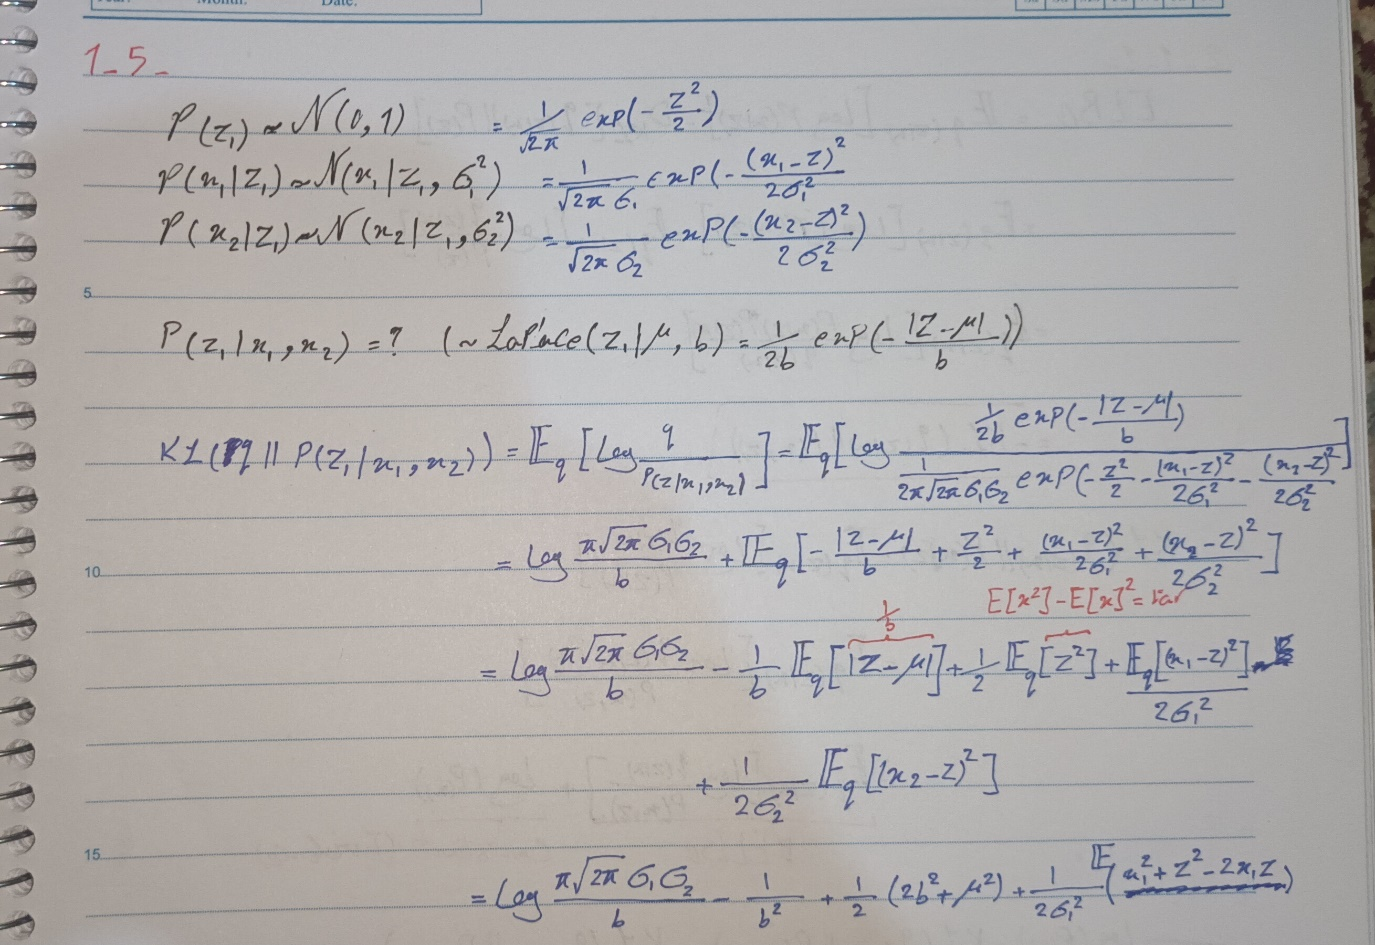 Year: Month: Date:
1_5_
P(z₁) ~ N(0,1) = 1/√2π exp(-z²/2)
P(x₁|z₁) ~ N(x₁|z₁, σ₁²) = 1/(√2π σ₁) exp(-(x₁-z)²/2σ₁²
P(x₂|z₁) ~ N(x₂|z₁, σ₂²) = 1/(√2π σ₂) exp(-(x₂-z)²/2σ₂²)
5
P(z₁|x₁,x₂) = ? (~ Laplace(z₁|μ, b) = 1/2b exp(-|z-μ|/b))
KL(q || P(z₁|x₁,x₂)) = 𝔼q[Log q/P(z|x₁,x₂)] = 𝔼q[Log (1/2b exp(-|z-μ|/b))/(1/(2π√2π σ₁σ₂) exp(-z²/2 - (x₁-z)²/2σ₁² - (x₂-z)²/2σ₂²)]
10
= Log π√2π σ₁σ₂/b + 𝔼q[-|z-μ|/b + z²/2 + (x₁-z)²/2σ₁² + (x₂-z)²/2σ₂²]
1/b E[x²]-E[x]² = Var
= Log π√2π σ₁σ₂/b - 1/b 𝔼q[|z-μ|] + 1/2 𝔼q[z²] + 𝔼q[(x₁-z)²]/2σ₁²
+ 1/2σ₂² 𝔼q[(x₂-z)²]
15
= Log π√2π σ₁σ₂/b - 1/b² + 1/2 (2b²+μ²) + 1/2σ₁² 𝔼(x₁²+z²-2x₁z)